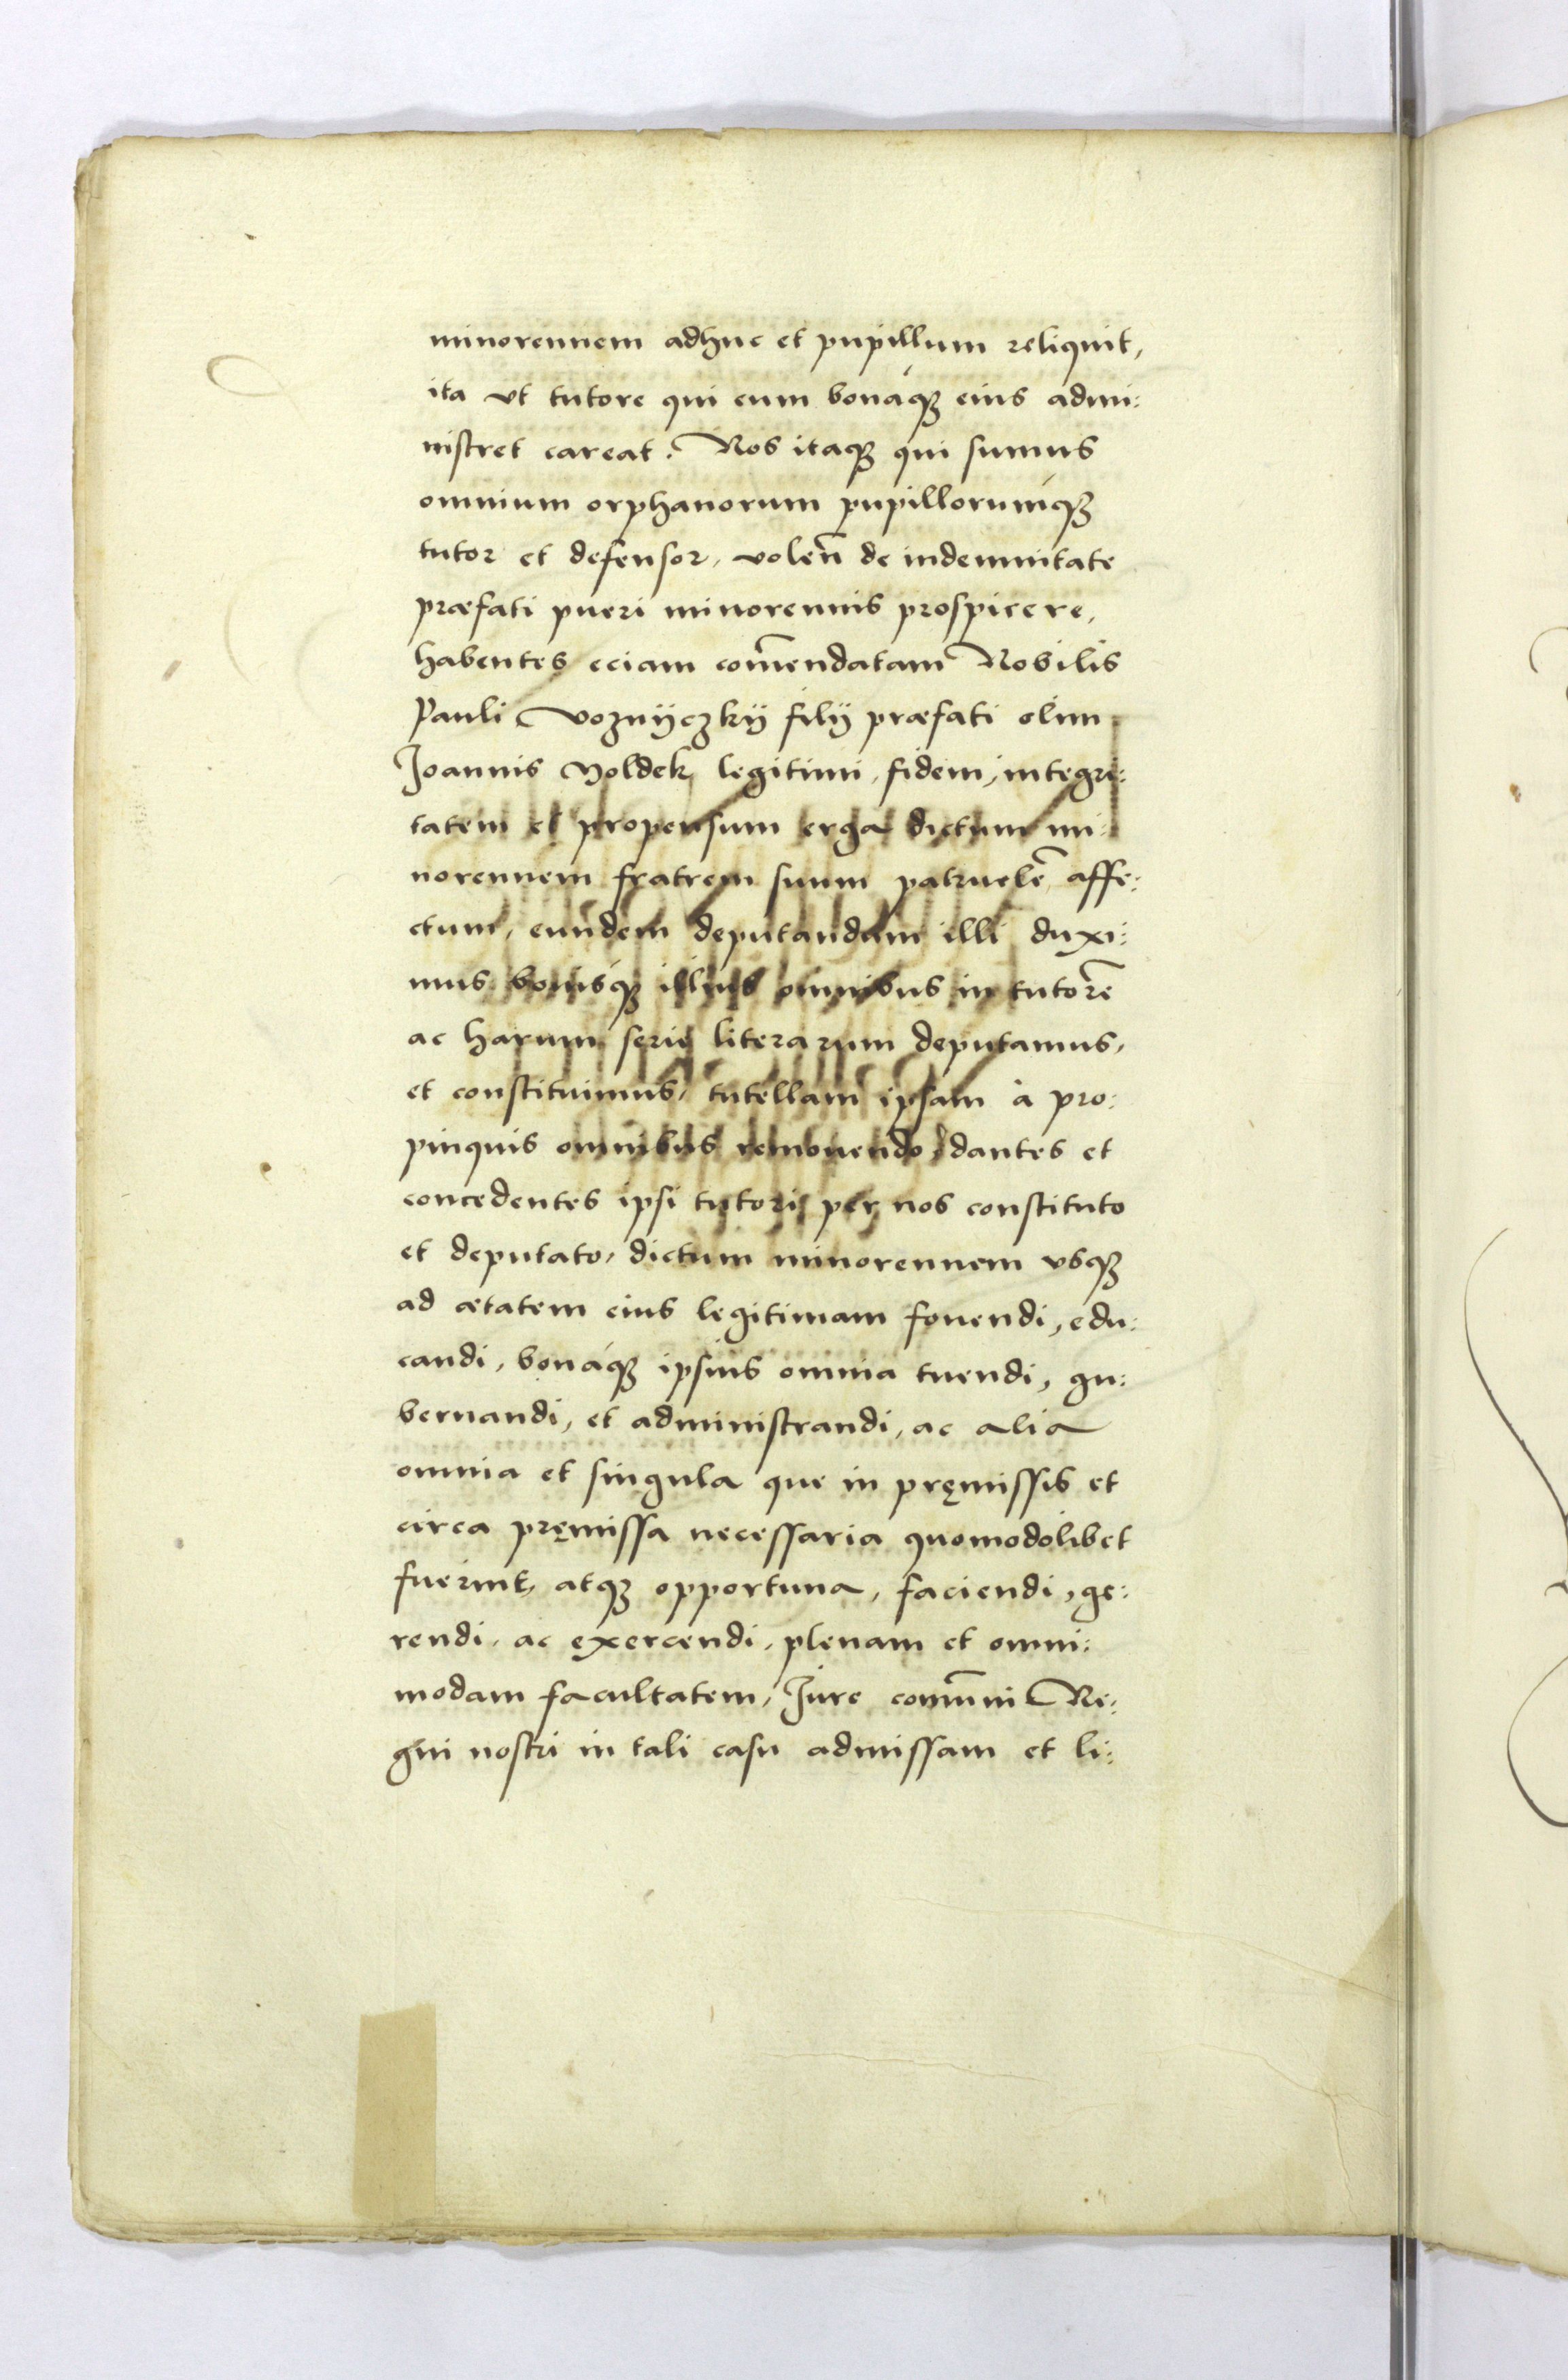 minorennem adhuc et pupillum reliquit,
ita vt tutore qui eum bonáqꝫ eius admi:
nistret careat. Nos itaqꝫ qui sumus
omnium orphanorum pupillorumqꝫ
tutor et defensor, volen̄ de indemnitate
præfati pueri minorennis prospicere,
habentes eciam com̄endatam Nobilis
Pauli Voznÿczkÿ filÿ præfati olim
Joannis Noldek legitimi, fidem, integri:
tatem et propensum erga dictum mi:
norennem fratrem suum patruelē affe:
ctum, eundem deputandum illi duxi:
mus bonisqꝫ illius omnibus in tutorē
ac harum serie literarum deputamus,
et constituimus, tutellam ipsam à pro:
pinquis omnibus remouendo, dantes et
concedentes ipsi tutori per nos constituto
et deputato, dictum minorennem vsqꝫ
ad ætatem eius legitimam fouendi, edu:
candi, bonáqꝫ ipsius omnia tuendi, gu:
bernandi, et administrandi, ac alia
omnia et singula que in pręmissis et
circa pręmissa necessaria quomodolibet
fuerint, atqꝫ opportuna, faciendi, ge:
rendi, ac exercendi, plenam et omni:
modam facultatem, Jure com̄uni Re:
gni nostri in tali casu admissam et li: